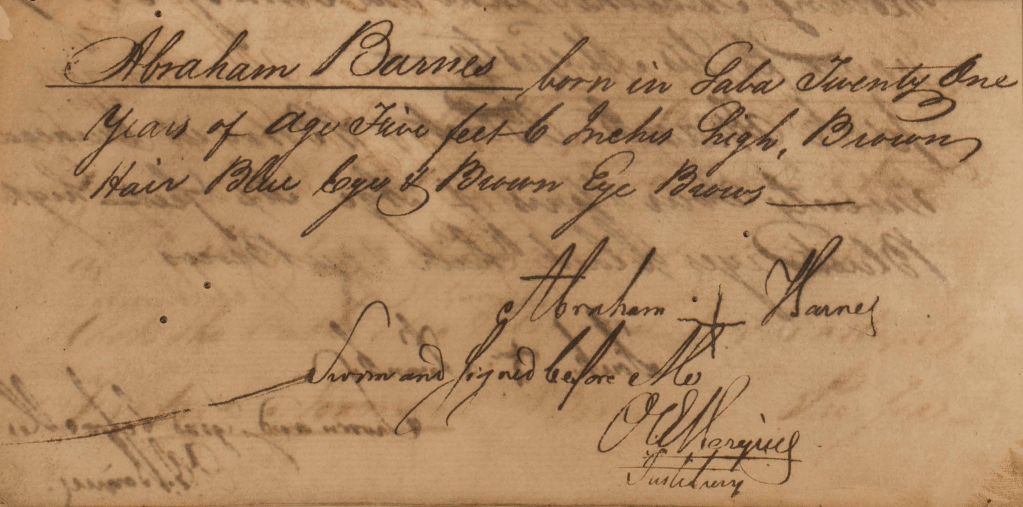 Abraham Barnes born in Saba Twenty One
Years of Age Five feet 6 Inches high, Brown
Hair Blue Eyes & Brown Eye Brows
Abraham + Barnes
Sworn and signed before Me